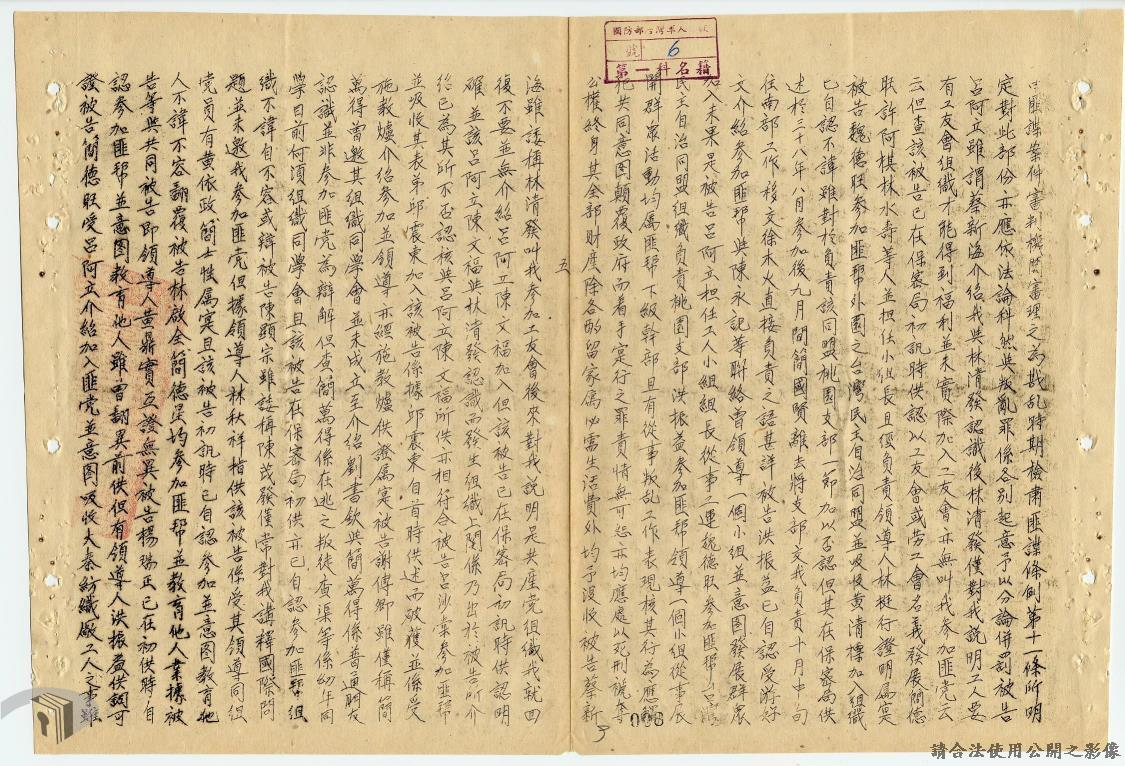 國防部台灣軍人
號 6
第一科名籍
日匪諜案件審判機關審理之為戡乱時期檢肅匪諜條例第十一條所明
定對此部份亦應依法論科然與叛亂罪係各別起意予以分論併罰被告
呂阿立雖謂蔡新海介紹我與林清發認識後林清發僅對我說明工人要
有工友會組織才能得到福利並未實際加入工友會亦無叫我參加匪党云
云但查該被告已在保密局初訊時供認以工友會或劳工會名義發展簡德
旺許阿棋林水寿等人並担任小組長且經負責領導人林挺行證明為實
被告魏德旺參加匪帮外圍之台灣民主自治同盟並吸收黄清標加入組織
已自認不諱雖對於負責該同盟桃園支部一節加以否認但其在保密局供
述於三十八年八月參加後九月間簡國賢離去將支部交我負責十月中旬
往南部工作移交徐木火直接負責之語甚詳被告洪振益已自認受游好
文介紹參加匪帮與陳永記等聯絡曾領導一個小組並意图發展群眾
加入未果是被告呂阿立担任工人小組組長從事工運魏德旺參加匪帮台灣
民主自治同盟組織負責桃園支部洪振益參加匪帮領導一個小組從事展
開群眾活動均属匪帮下級幹部且有從事叛乱工作表現核其行為應
犯共同意图顛覆政府而着手实行之罪責情無可恕亦均應處以死刑褫奪
公權終身其全部財產除各酌留家属必需生活費外均予沒收被告蔡新
008
五
海雖諉稱林清發叫我參加工友會後來對我說明是共產党組織我就回
復不要並無介紹呂阿立陳文福加入但該被告已在保密局初訊時供認明
確並該呂阿立陳文福與林清發認識而發生組織上關係乃出於被告所介
紹已為其所不否認核與呂阿立陳文福所供亦相符合被告呂沙棠參加匪帮
並吸收其表弟邱震東加入該被告係據邱震東自首時供述而破獲並係受
施教爐介紹參加並領導亦經施教爐供證属實被告謝傳卿雖僅稱簡
萬得曾邀其組織同學會並未成立至介紹劉書欽與簡萬得係普通朋友
認識並非參加匪党為辯解但查簡萬得係在逃之叛徒查渠等係幼年同
學日前何須組織同學會且該被告在保密局初供亦已自認參加匪帮組
織不諱自不容或辯被告陳顯宗雖諉稱陳茂發僅常對我講釋國際問
題並未邀我參加匪党但據領導人林秋祥指供該被告係受其領導同組
党員有黄依政簡士性属實且該被告初訊時已自認參加並意图教育他
人不諱不容翻覆被告林啟全簡德星均參加匪帮並教育他人業據被
告等與共同被告即領導人黄鼎實互證無異被告楊瑞正已在初供時自
認參加匪帮並意图教育他人雖曾翻異前供但有領導人洪振益供詞可
證被告簡德旺受呂阿立介紹加入匪党並意图吸收大秦紡織廠工人之事雖
請合法使用公開之影像